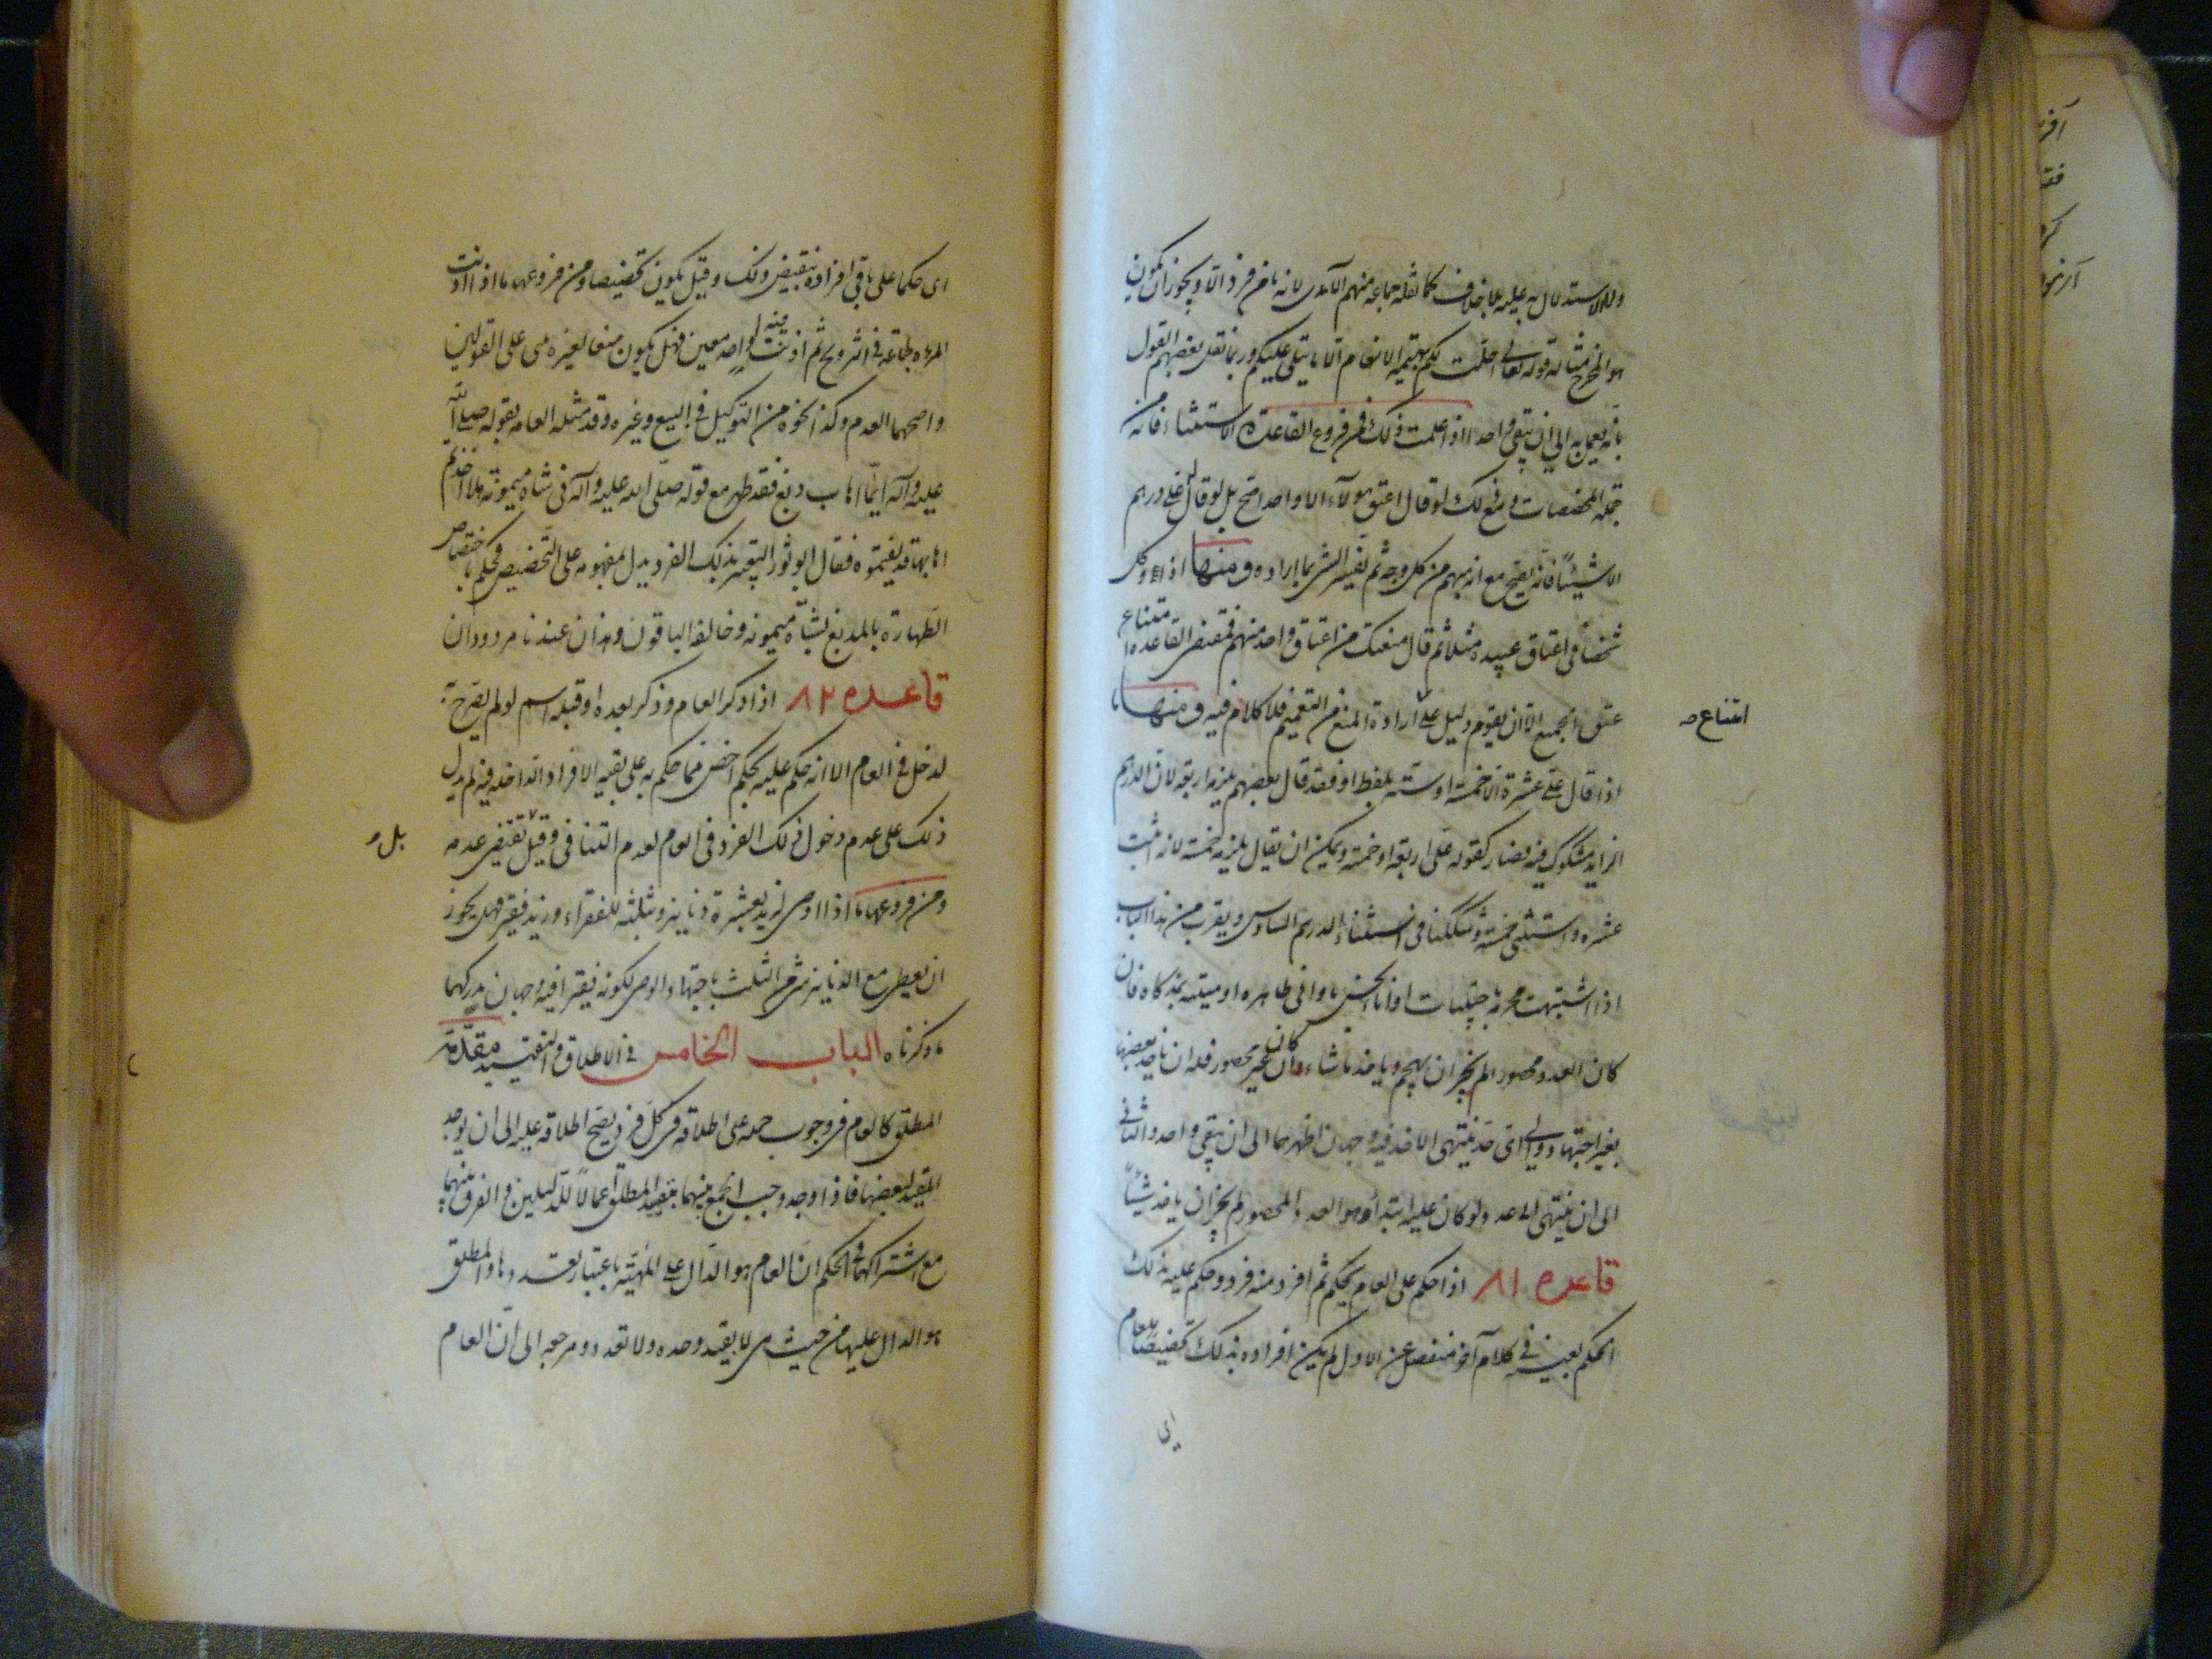 ولا الاستدلال به عليه بلا خلاف كما نقله جماعة منهم الآمدى لانه ما من فرد الا ويجوز ان يكون
هو المخرج مثاله قوله تعالى احلت لكم بهيمة الانعام الا ما يتلى عليكم وربما نقل بعضهم القول
بانه يعمل به الى ان يبقى واحد اذا علمت ذلك فمن فروع القاعدة الاستثناء فانه من
جملة المخصصات ومع ذلك لو قال اعتق هولاء الا واحدا صح بل لو قال له على درهم
الا شيئا فانه يصح مع انه مبهم من كل وجه ثم يفسر الشئ بما اراده ومنها اذا وكل
شخصا فى اعتاق عبيده مثلا ثم قال منعتك من اعتاق واحد منهم فمقتضى القاعدة امتناع
عتق الجميع الا ان يقوم دليل على ارادة المنع من التعميم فلا كلام فيه ومنها ما
امتناع صه
اذا قال على عشرة الا خمسة او ستة بلفظ او فقد قال بعضهم يلزمه اربعة لان الدرهم
الزايد مشكوك فيه فصار كقوله على اربعة او خمسة ويمكن ان يقال يلزمه خمسة لانه اثبت
عشرة واستثنى خمسة وشككنا فى استثناء الدرهم السادس ويقرب من هذا الباب
اذا اشتبهت محرمة باجنبيات او اناء نجس باوانى طاهرة او ميتة بمذكاة فان
كان العدد محصورا لم يجز ان يهجم وياخذ ما شاء وان كان غير محصور فله ان ياخذ بعضها
بغير اجتهاد والى اى حد ينتهى الاخذ فيه وجهان اظهرهما الى ان يبقى واحد والثانى
الى ان ينتهى الى عدد لو كان عليه ابتداء وهو العدد المحصور لم يجز ان ياخذ شيئا
قاعده ٨١ اذا حكم على العام بحكم ثم افرد منه فرد وحكم عليه بذلك
الحكم بعينه فى كلام آخر منفصل عن الاول لم يكن افراده بذلك تخصيصا للعام
اى
اى حكما على باقى افراده بنقيض ذلك وقيل يكون تخصيصا ومن فروعها ما اذا اذنت
المراة لجماعة فى التزويج ثم اذنت منه لواحد معين فهل يكون منعا لغيره هى على القولين
واصحهما العدم وكذا نحوه من التوكيل فى البيع وغيره وقد مثله العامه بقوله صلى الله
عليه وآله ايما اهاب دبغ فقد طهر مع قوله صلى الله عليه وآله فى شاة ميمونة هلا اخذتم
اهابها فدبغتموه فقال ابو ثور التعبير بذلك الفرد يدل بمفهومه على التخصيص فحكم باختصاص
الطهارة بالمدبوغ بشاة ميمونه وخالف الباقون وهذان عندنا مردودان
قاعده ٨٢ اذا ذكر العام وذكر بعده او قبله اسم لو لم يصرح به
لدخل فى العام الا انه حكم عليه بحكم اخص مما حكم به على بقية الافراد الداخلة فيه لم يدل
ذلك على عدم دخول ذلك الفرد فى العام لعدم التنافى وقيل يقتضى عدمه
بل م
ومن فروعها ما اذا اوصى لزيد بعشرة دنانير وبثلثه للفقراء وزيد فقير فهل يجوز
ان يعطى مع الدنانير شئ من الثلث باجتهاد الوصى لكونه فقيرا فيه وجهان مدركهما
ما ذكرناه الباب الخامس فى الاطلاق والتقييد مقدمة
المطلق كالعام فى وجوب حمله على اطلاقه فى كل فرد يصح اطلاقه عليه الى ان يوجد
المقيد لبعضها فاذا وجد وجب الجمع بينهما بتقييد المطلق اعمالا للدليلين والفرق بينهما
مع اشتراكهما فى الحكم ان العام هو الدال على المهية باعتبار تعددها والمطلق
هو الدال عليها من حيث هى لا بقيد وحدة ولا تعدد ومرجعه الى ان العام